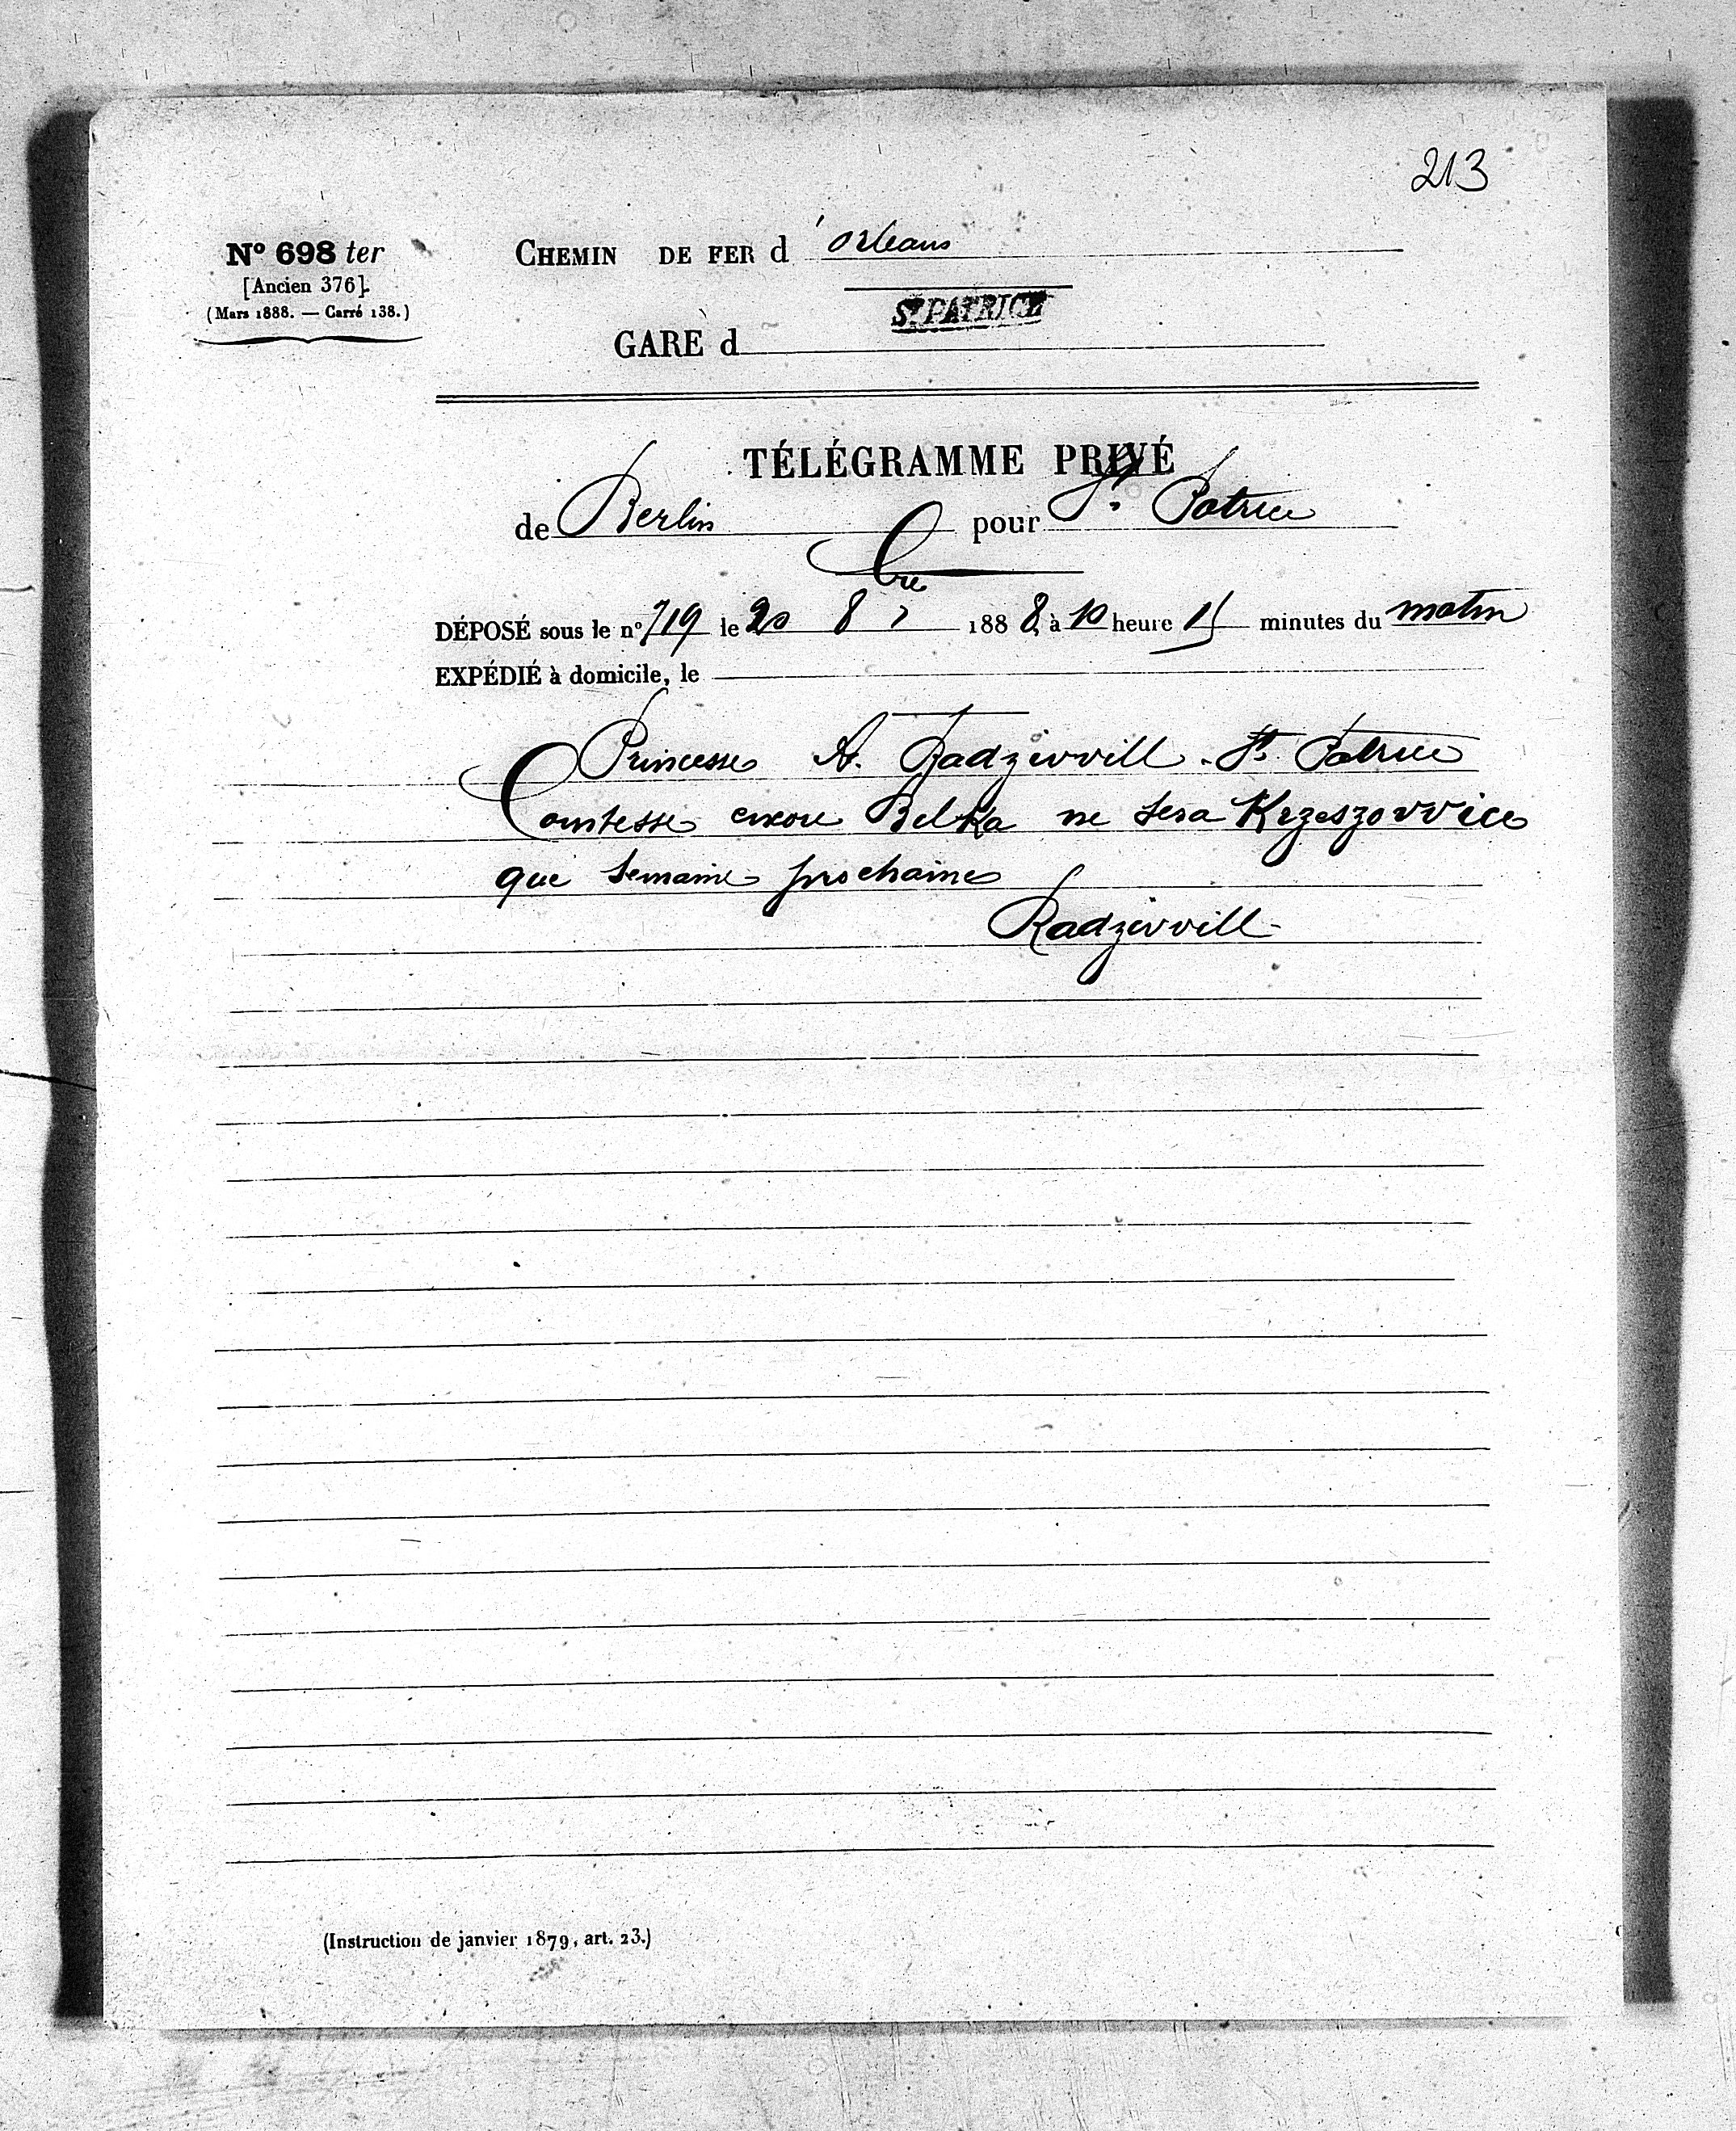 213
Nº 698 ter
[Ancien 376].
(Mars 1888. — Carré 138.)
CHEMIN DE FER d'Orleans
ST PATRICE
GARE d
TÉLÉGRAMME PRIVÉ
de Berlin pour St. Patrice
DÉPOSÉ sous le nº 719 le 20 8bre 1888, à 10 heure 15 minutes du matin
EXPÉDIÉ à domicile, le
Princesse A. Radzivvill. St. Patrice
Comtesse encore Belka ne sera Krzeszovvice
que semaine prochaine
Radzivvill
(Instruction de janvier 1879, art. 23.)